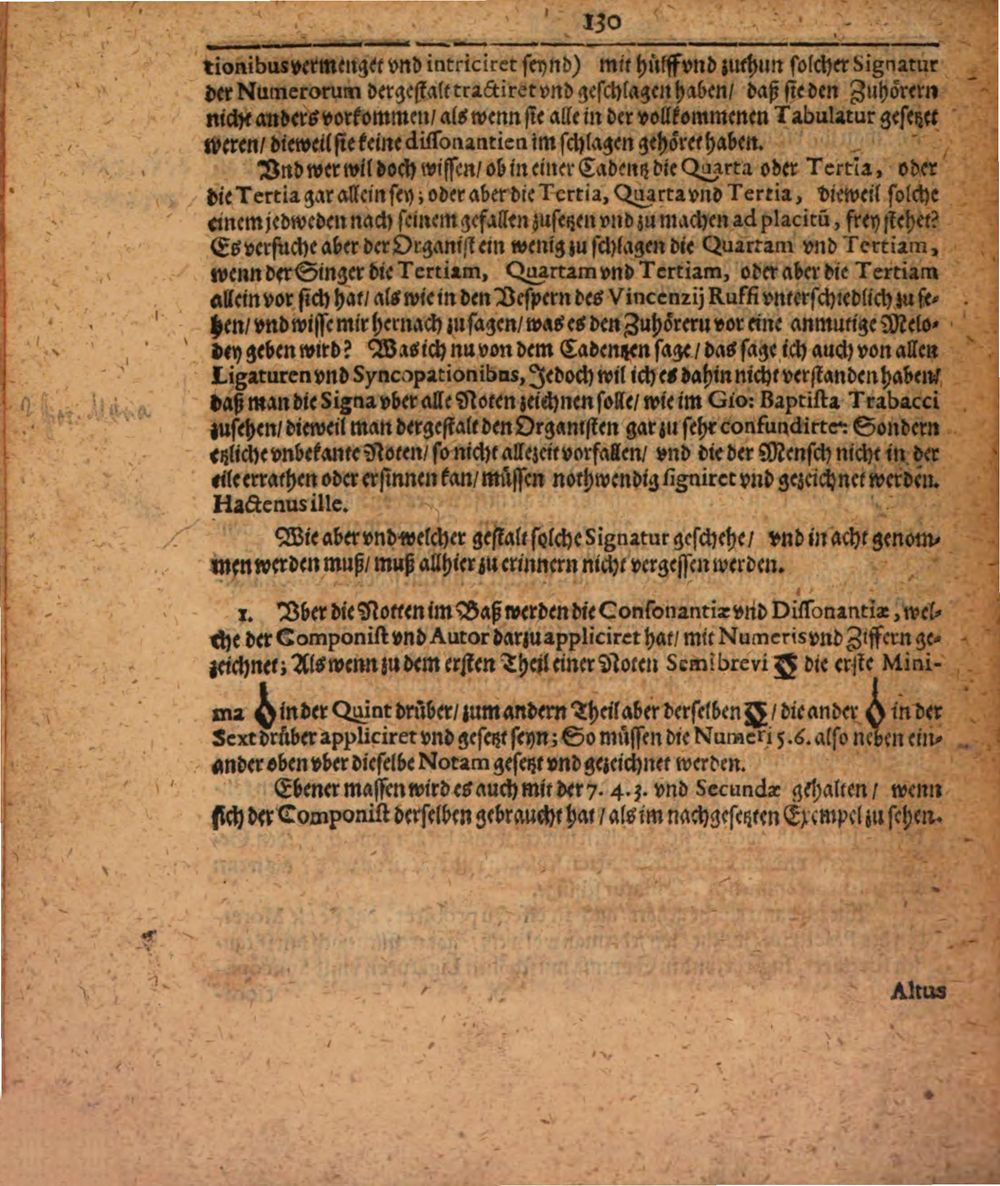 130
tionibus vermenget vnd intriciret seynd) mit hülff vnd zuthun solcher Signatur
der Numerorum dergestalt tractiret vnd geschlagen haben/ daß sie den Zuhörern
nicht anders vorkommen/ als wenn sie alle in der vollkommenen Tabulatur gesetzet
weren/ dieweil sie keine dissonantien im schlagen gehöret haben.
Vnd wer wil doch wissen/ ob in einer Cadentz die Quarta oder Tertia, oder
die Tertia gar allein sey; oder aber die Tertia, Quarta vnd Tertia, dieweil solche
einem jedweden nach seinem gefallen zusetzen vnd zu machen ad placitũ, frey stehet?
Es versuche aber der Organist ein wenig zu schlagen die Quartam vnd Tertiam,
wenn der Singer die Tertiam, Quartam vnd Tertiam, oder aber die Tertiam
allein vor sich hat/ als wie in den Vespern des Vincenzij Ruffi vnterschiedlich zu se-
hen/ vnd wisse mir hernach zu sagen/ was es den Zuhöreru vor eine anmutige Melo-
dey geben wird? Was ich nu von dem Cadentzen sage/ das sage ich auch von allen
Ligaturen vnd Syncopationibus, Jedoch wil ich es dahin nicht verstanden haben/
daß man die Signa vber alle Noten zeichnen solle/ wie im Gio: Baptista Trabacci
zusehen/ dieweil man dergestalt den Organisten gar zu sehr confundirte: Sondern
etzliche vnbekante Noten/ so nicht allezeit vorfallen/ vnd die der Mensch nicht in der
eile errathen oder ersinnen kan/ müssen nothwendig signiret vnd gezeichnet werden.
Hactenus ille.
Wie aber vnd welcher gestalt solche Signatur geschehe/ vnd in acht genom-
men werden muß/ muß allhier zu erinnern nicht vergessen werden.
1. Vber die Notten im Baß werden die Consonantiæ vnd Dissonantiæ, wel-
che der Componist vnd Autor darzu appliciret hat/ mit Numeris vnd Ziffern ge-
zeichnet; Als wenn zu dem ersten Theil einer Noten Semibrevi die erste Mini-
ma in der Quint drüber/ zum andern Theil aber derselben / die ander in der
Sext drüber appliciret vnd gesetzt seyn; So müssen die Numeri 5.6. also neben ein-
ander oben vber dieselbe Notam gesetzt vnd gezeichnet werden.
Ebener massen wird es auch mit der 7. 4. 3. vnd Secundæ gehalten/ wenn
sich der Componist derselben gebraucht hat/ als im nachgesetzten Exempel zu sehen.
Altus